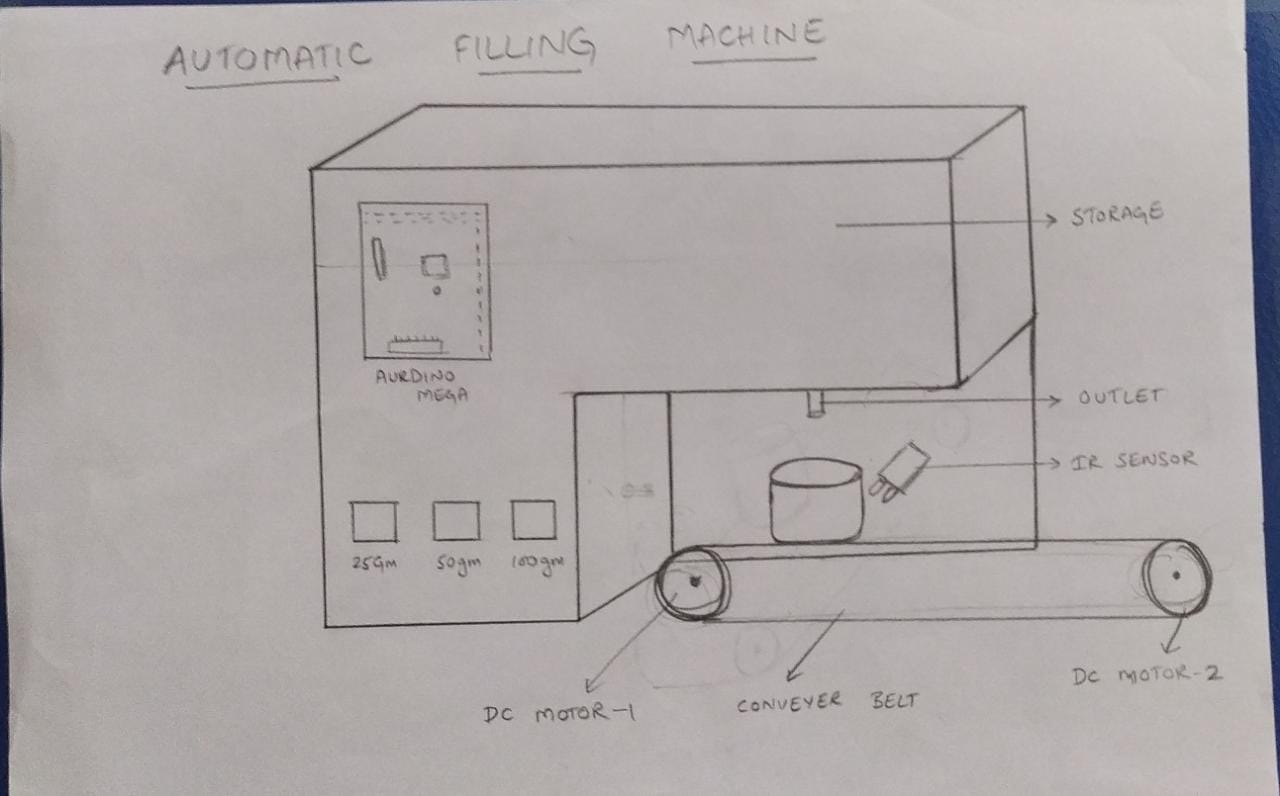 AUTOMATIC FILLING MACHINE
STORAGE
AURDINO
MEGA
OUTLET
IR SENSOR
25Gm 50gm 100gm
DC MOTOR-2
DC MOTOR-1
CONVEYER BELT